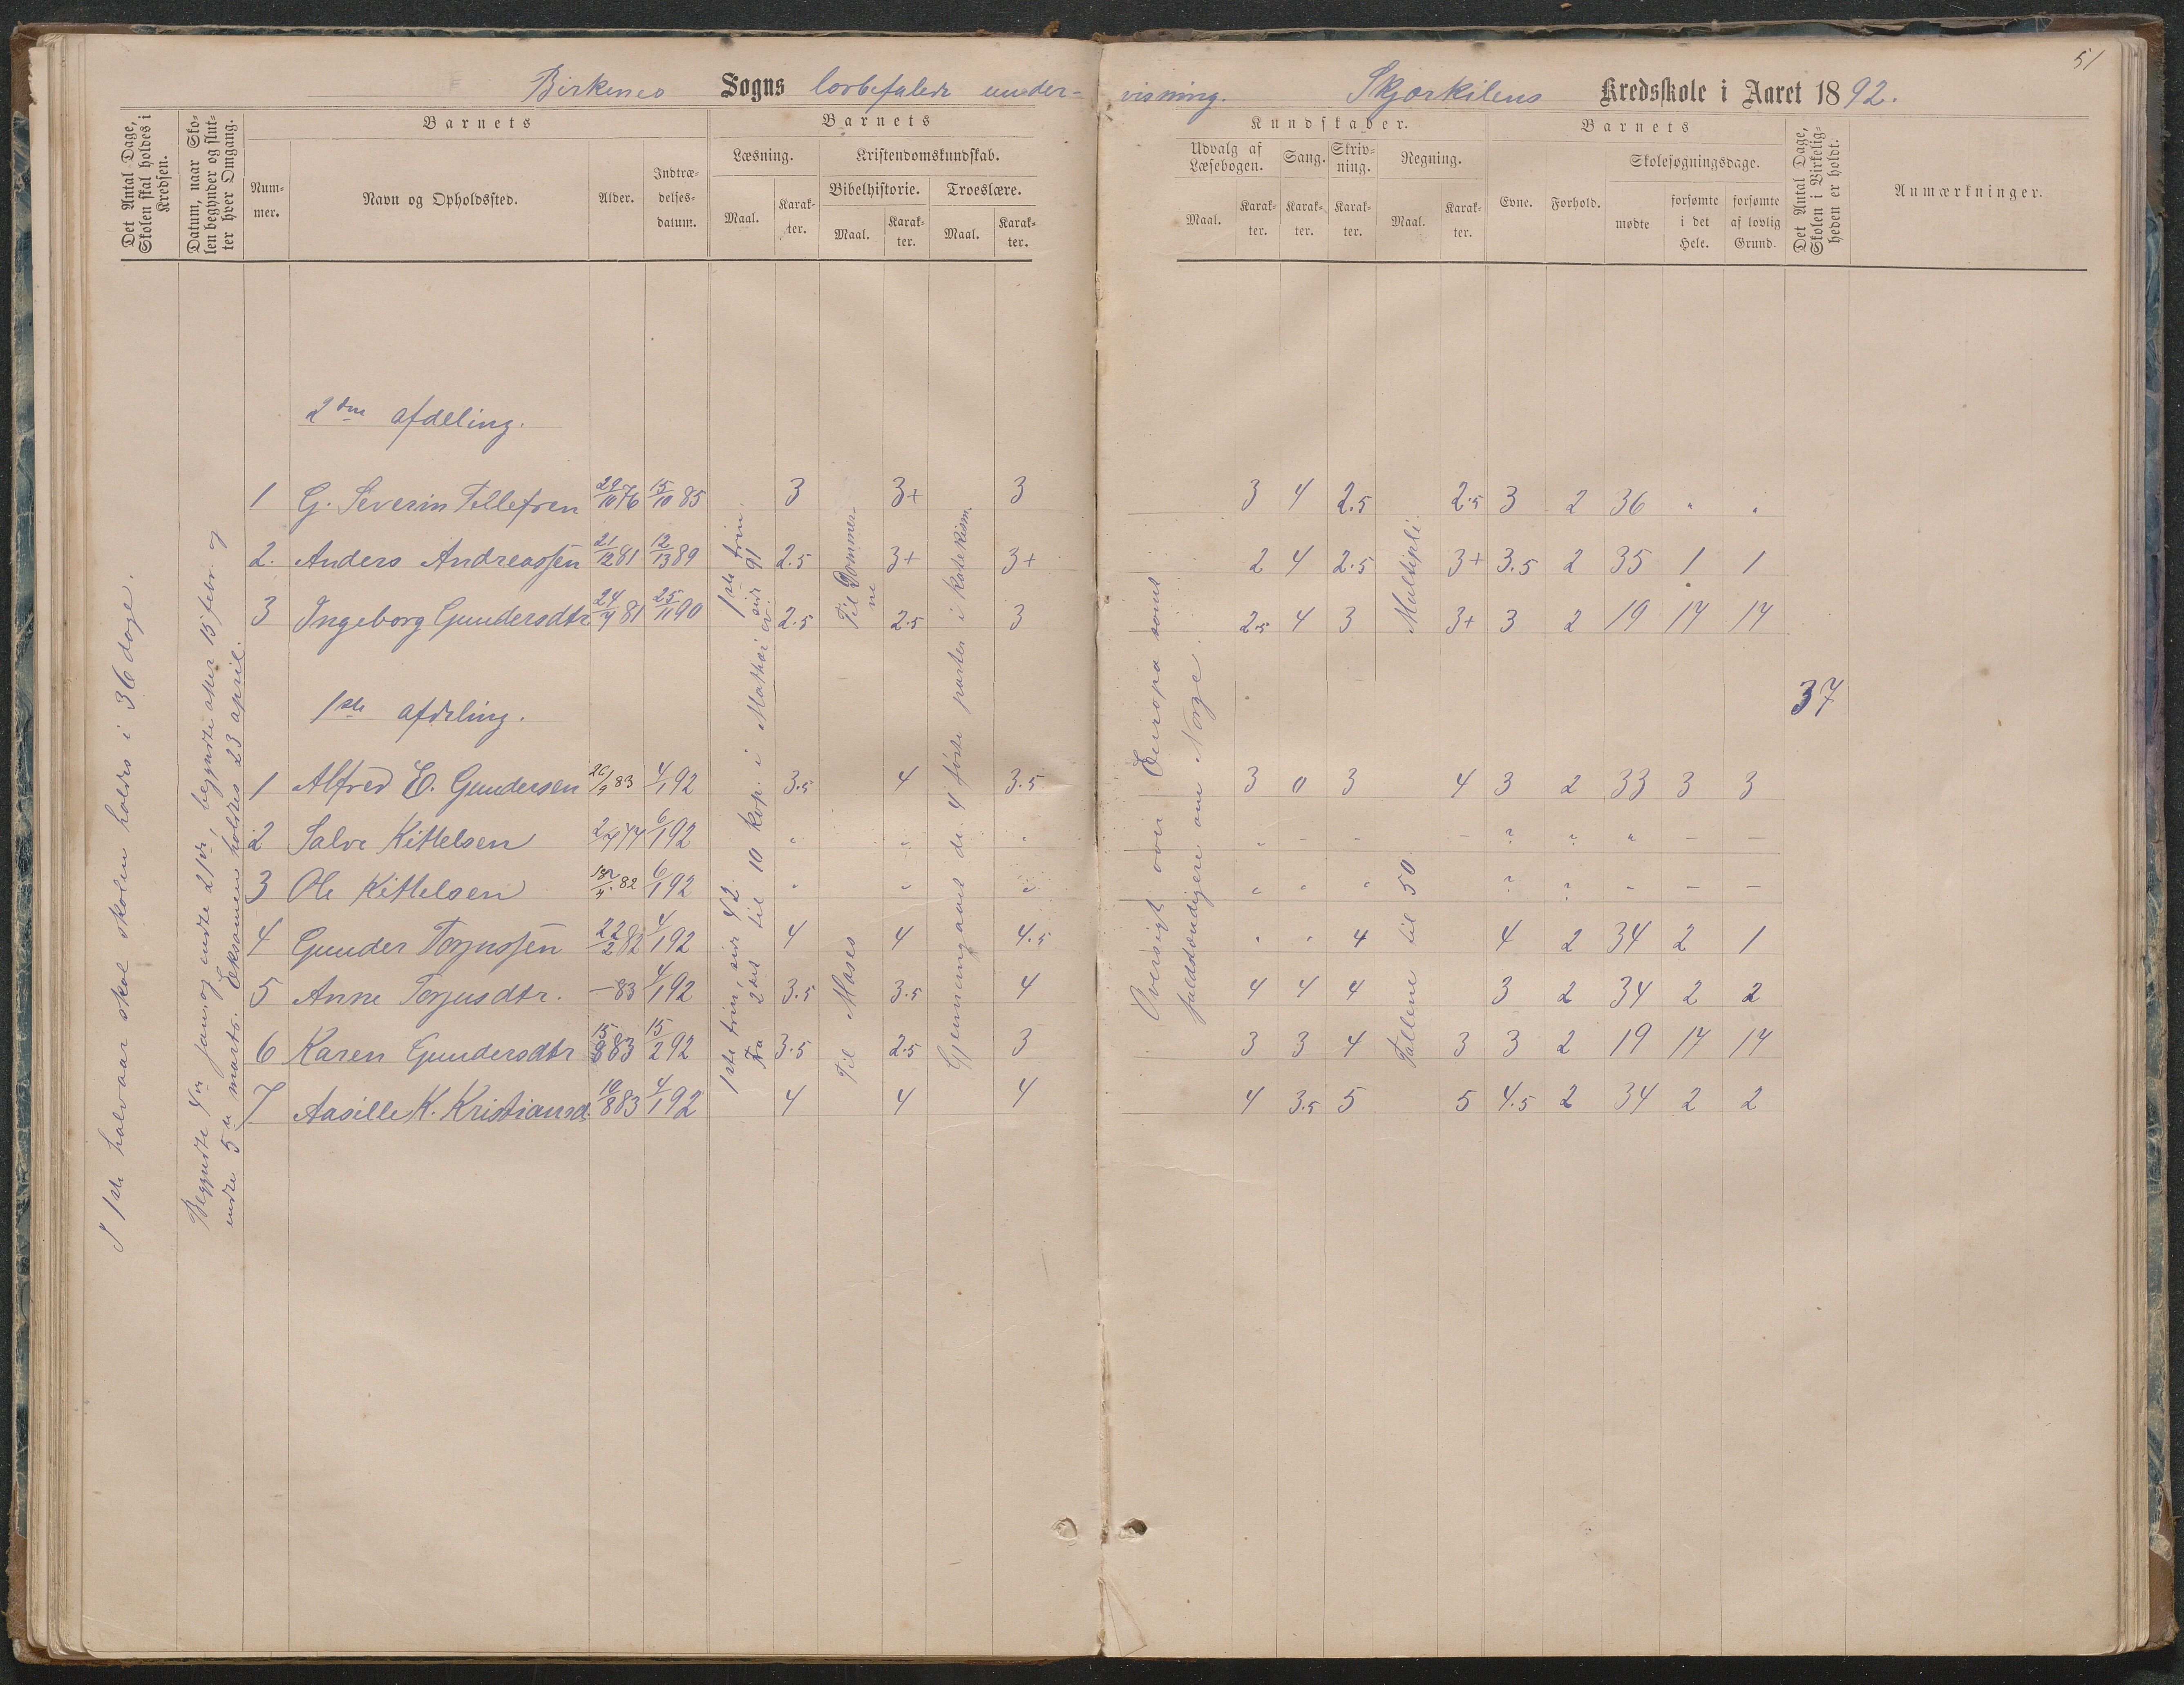 51
Birkenes Sogns lovbefalede under- visning. Skjærkilens Kredsskole i Aaret 1892.
Det Antal Dage, Skolen skal holdes i Kredsen.
Datum, naar Skolen begynder og slutter hver Omgang.
Barnets
Nummer.
Navn og Opholdssted.
Alder.
Indtrædelsesdatum.
Barnets
Læsning.
Maal.
Karakter.
Kristendomskundskab.
Bibelhistorie.
Maal.
Karakter.
Troeslære.
Maal.
Karakter.
Kundskaber.
Udvalg af Læsebogen.
Maal.
Karakter.
Sang.
Karakter.
Skrivning.
Karakter.
Regning.
Maal.
Karakter.
Barnets
Evne.
Forhold.
Skolesøgningsdage.
mødte
forsømte i det Hele.
forsømte af lovlig Grund.
Det Antal Dage, Skolen i Virkeligheden er holdt.
Anmærkninger.
I 1ste halvaar skal skolen holdes i 36 dage.
Begyndte 4de januar og endte 21de, begyndte atter 15 febr. og
endte 5te marts. Eksamen holdtes 23 april.
2den afdeling.
1 G. Severin Tellefsen 29/10 76 15/10 85 3 3+ 3 3 4 2.5 2.5 3 2 36 " "
2. Anders Andreassen 21/12 81 12/13 89 2.5 3+ 3+ 2 4 2.5 3+ 3.5 2 35 1 1
3 Ingeborg Gundersdtr 24/4 81 25/11 90 2.5 2.5 3 2.5 4 3 3+ 3 2 19 17 17
1ste trin
Til Dommerne
Multipli
37
1ste afdeling.
1 Alfred E. Gundersen 83 4/1 92 3.5 4 3.5 3 0 3 4 3 2 33 3 3
2 Salve Kittelsen 6/1 92 " " " " - - - ? " " - -
3 Ole Kittelsen 82 6/1 92 " " " " " " ? ? " - -
4 Gunder Torjussen 22/2 82 4/1 92 4 4 4.5 " " 4 4 2 34 2 1
5 Anne Torjusdtr. - 83 4/1 92 3.5 3.5 4 4 4 4 3 2 34 2 2
6 Karen Gundersdtr 83 15/2 92 3.5 2.5 3 3 3 4 3 3 2 19 17 17
7 Aasille K. Kristiansd. 10/8 83 4/1 92 4 4 4 4 3.5 5 5 4.5 2 34 2 2
1ste trin, side 42.
Fra 2det til 10 kap. i Mathæi ev.
Til Moses
Gjennemgaaet de 4 første parter i katekism.
Oversigt over Europa samt
fuldstændigere om Norge.
Tallene til 50